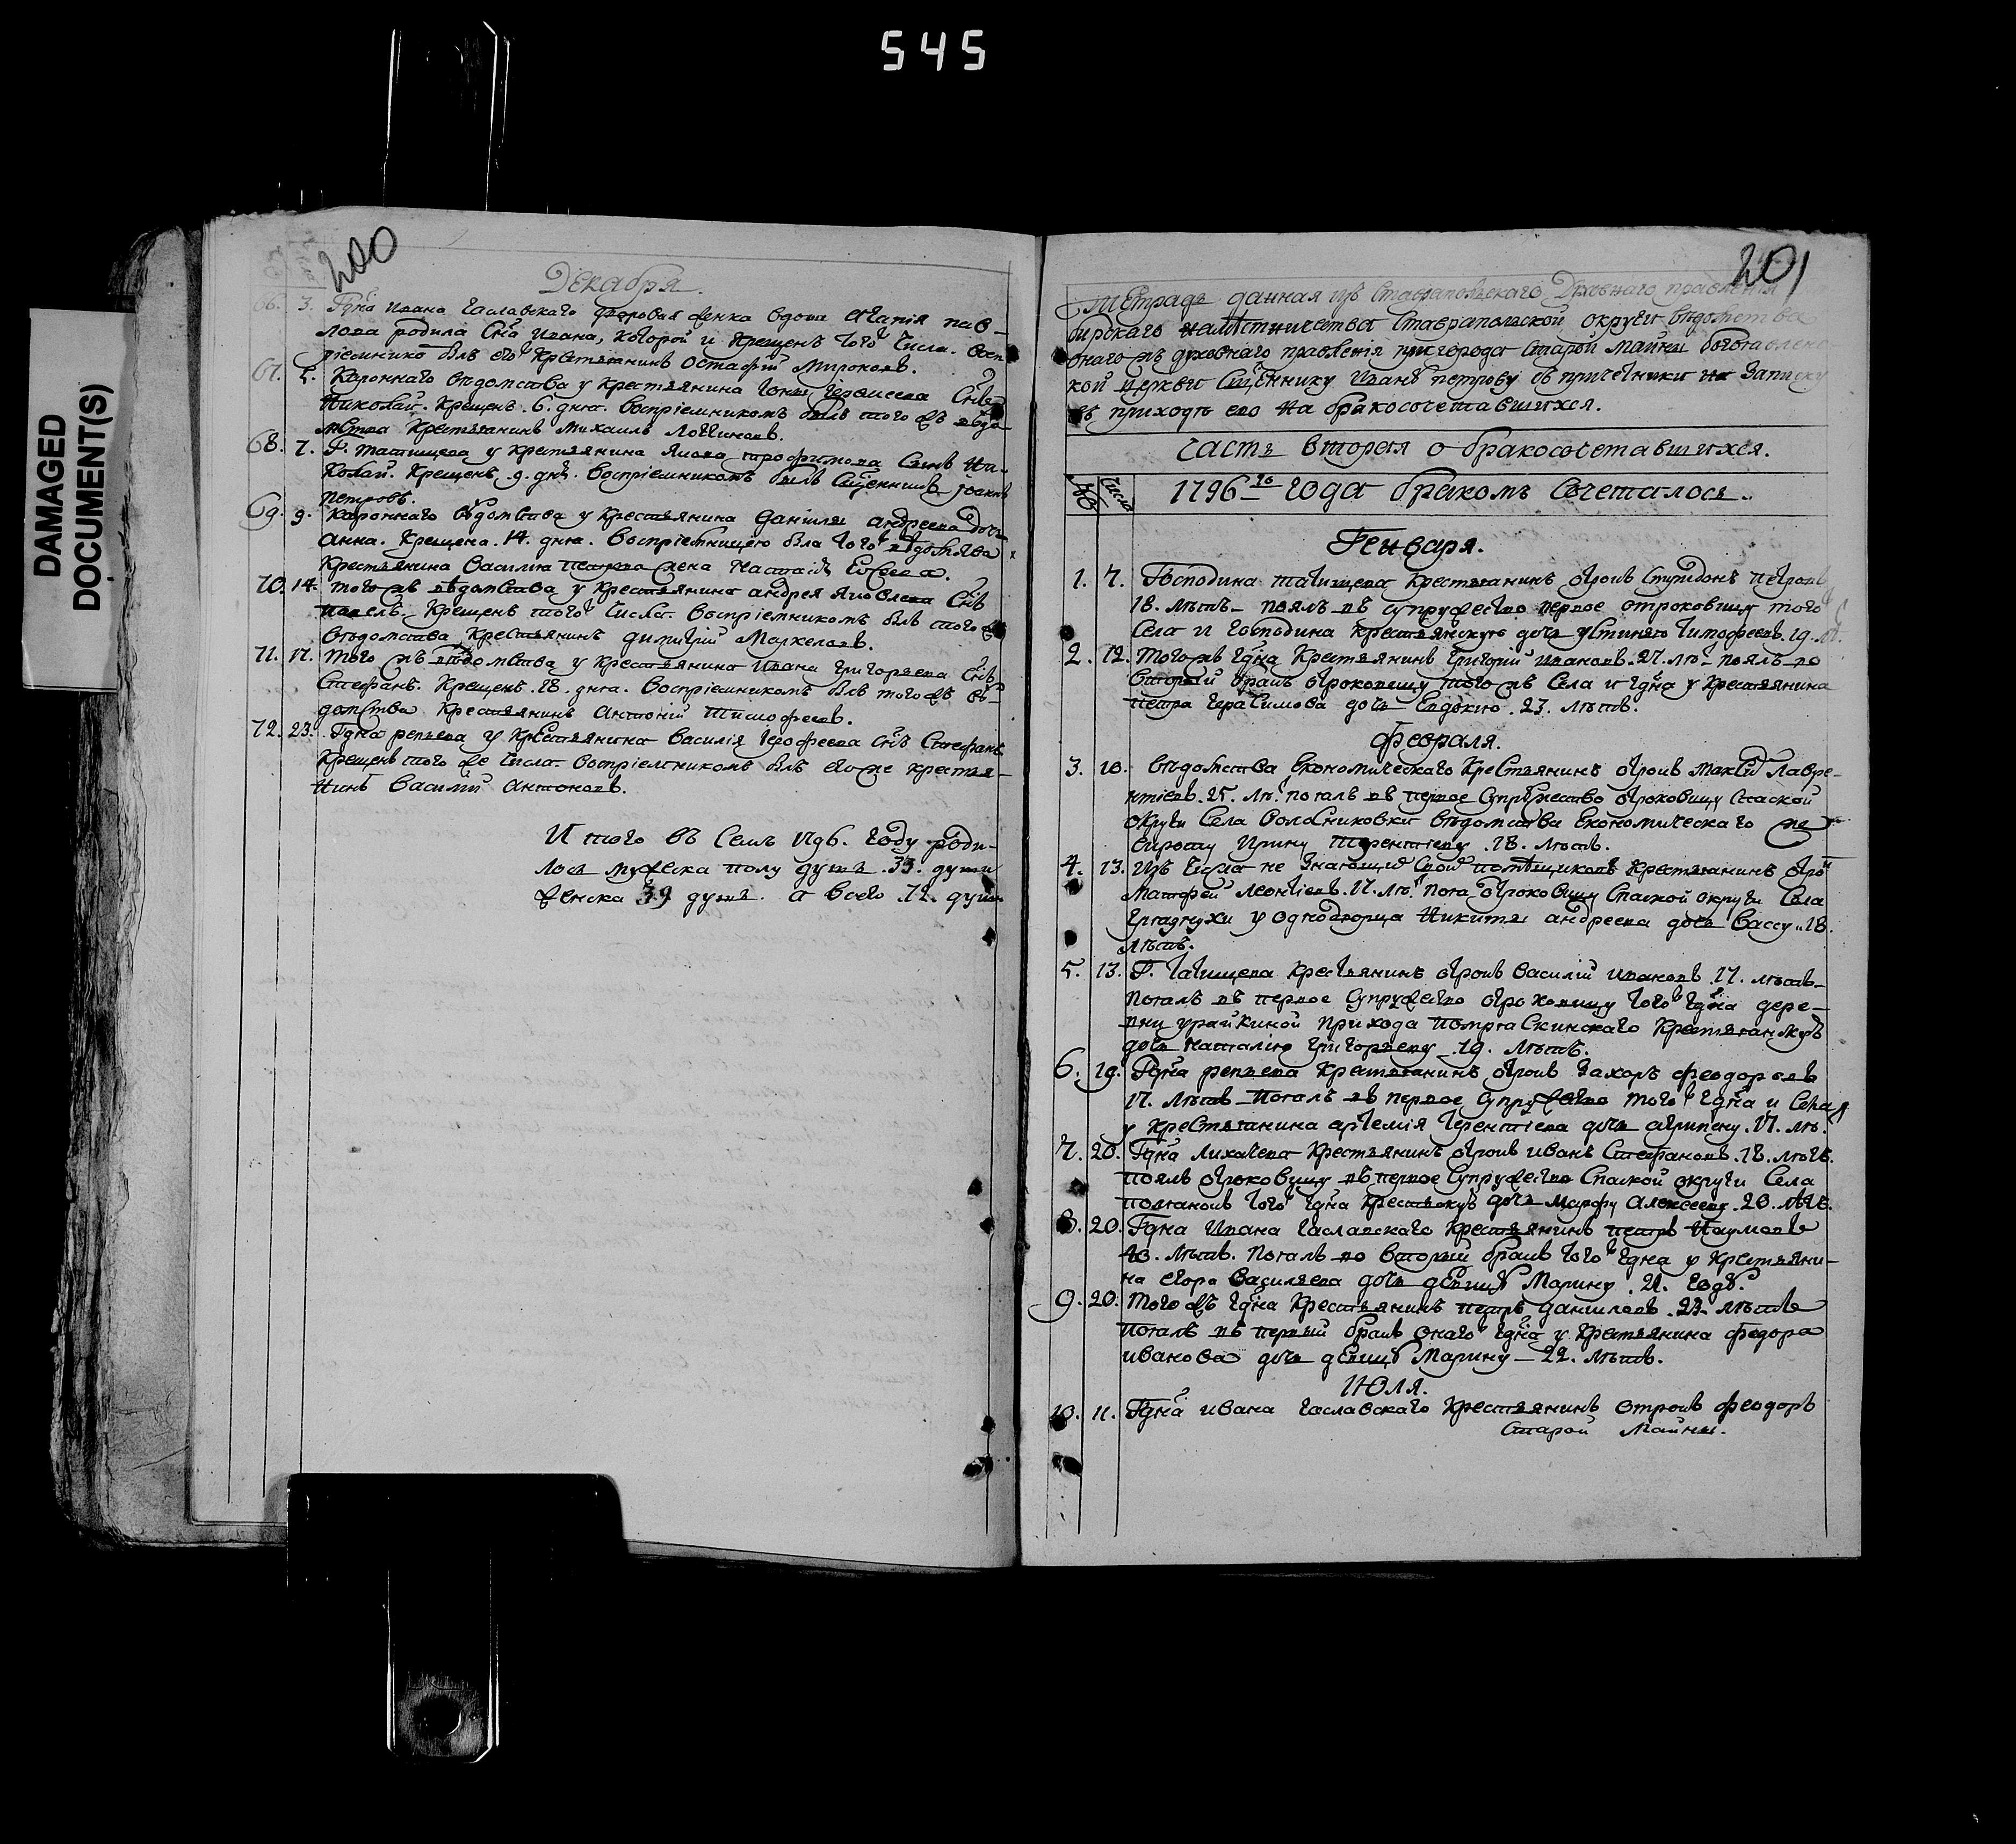 545
DAMAGED
DOCUMENT(S)
200
Декабря.
66. 3. Гдна Ивана Чаславского дворовая женка вдова Агапія Пав-
лова родила Сна Ивана, которой и Крещенъ того числа. Вос
пріемнико былъ его Крестьянинъ Остафій Мироновъ.
67. 5. Короннаго вѣдомства у Крестьянина Іоны Еремеева Снъ
Николай. Крещенъ. 6. дня. Воспріемникомъ былъ того жъ вѣдо
мства Крестьянинъ Михаилъ Логиновъ.
68. 7. Г. Татищева у Крестьянина Якова Трофимова Сынъ Ни-
колай. Крещенъ. 9. дня. Воспріемникомъ былъ Сщенникъ Іоаннъ
Петровъ.
69. 9. Короннаго вѣдомства у Крестьянина Данилы Андреева дочь
Анна. Крещена. 14. дня. Воспріемницею была того вѣдомства
Крестьянина Василия Петрова жена Настасія
70. 14. Того жъ вѣдомства у Крестьянина Андрея Яковлева Снъ
Павелъ. Крещенъ того числа. Воспріемникомъ былъ того ж
вѣдомства Крестьянинъ Димитрій Маркеловъ.
71. 17. Того жъ вѣдомства у Крестьянина Ивана Григорьева Снъ
Стефанъ. Крещенъ. 18. дня. Воспріемникомъ былъ того жъ вѣ-
домства Крестьянинъ Антоній Тимофеевъ.
72. 23. Гдна Репьева у Крестьянина Василія Ерофеева Снъ Стефанъ
Крещенъ того же числа. Воспріемникомъ былъ его же крестья-
нинъ Василій Антоновъ.
Итого въ Семъ 1796. году роди-
лось мужеска полу душъ. 33. души
женска 39 душъ. а всего .72. души
201
Тетрадь данная изъ Ставропольскаго Духовнаго правленія
бирскаго намѣстничества Ставропольской округи вѣдомства
онаго жъ духовнаго правленія пригорода Старой Майны Богоявлен
кой церкви Сщеннику Ивану Петрову съ причетники на записку
въ приходѣ его на бракосочетавшихся.
Часть вторая о бракосочетавшихся.
№ Число 1796-го года бракомъ Сочеталось.
Генваря.
1. 7. Господина Татищева Крестьянинъ отрокъ Спиридонъ Петровъ
18. лѣтъ - поялъ въ супружество первое отроковицу того
Села и господина крестьянскую дочь Устинью Тимофееву. 19. лѣ.
2. 12. Того жъ Гдна Крестьянинъ Григорій Ивановъ. 27. лѣ - поялъ во
второй бракъ отроковицу того жъ Села и Гдна у Крестьянина
Петра Герасимова дочь Евдокию. 23. лѣтъ.
Февраля.
3. 10. Вѣдомства Економическаго Крестьянинъ отрокъ Лавре-
нтіевъ. 25. лѣ. поялъ въ первое Супружество отроковицу Спаской
округи Села вѣдомства Економическаго
Ирину Терентіеву. 18. лѣтъ.
4. 13. Изъ числа не знающи Свои помѣщиковъ Крестьянинъ отро
Матфей Леонтіевъ. 17. лѣ. поя отроковицу Спаской округи Села
у однодворца Никиты Андреева дочь Вассу. 18.
лѣтъ.
5. 13. Г. Татищева Крестьянинъ отрокъ Василій Ивановъ 17. лѣтъ
поялъ въ первое Супружество отроковицу того Гдна дере-
вни Урайкиной прихода Помряскинскаго Крестьянскую
дочь Наталію Григорьеву. 19. лѣтъ.
6. 19. Гдна Репьева Крестьянинъ отрокъ Захоръ Феодоровъ
17. лѣтъ - поялъ въ первое Супружество того Гдна и Села
у Крестьянина Артемія Терентіева дочь Агрипену. 17. лѣ.
7. 20. Гдна Лихачева Крестьянинъ отрокъ Иванъ Стефановъ. 18. лѣтъ.
поялъ отроковицу въ первое Супружество Спаской округи Села
Полянокъ того Гдна дочь Марфу Алексееву. 20. лѣтъ.
8. 20. Гдна Ивана Чаславскаго Крестьянинъ Петръ Наумовъ
40. лѣтъ. поялъ во второй бракъ того Гдна у Крестьяни-
на Егора Васильева дочь девицу Марину. 21. годъ.
9. 20. Того жъ Гдна Крестьянинъ Петръ Даниловъ. 23. лѣтъ
поялъ въ первый бракъ онаго Гдна у Крестьянина Федора
Иванова дочь девицу Марину - 22. лѣтъ.
Июля.
10. 11. Гдна Ивана Чаславскаго Крестьянинъ отрокъ Феодоръ
Старой Майны.